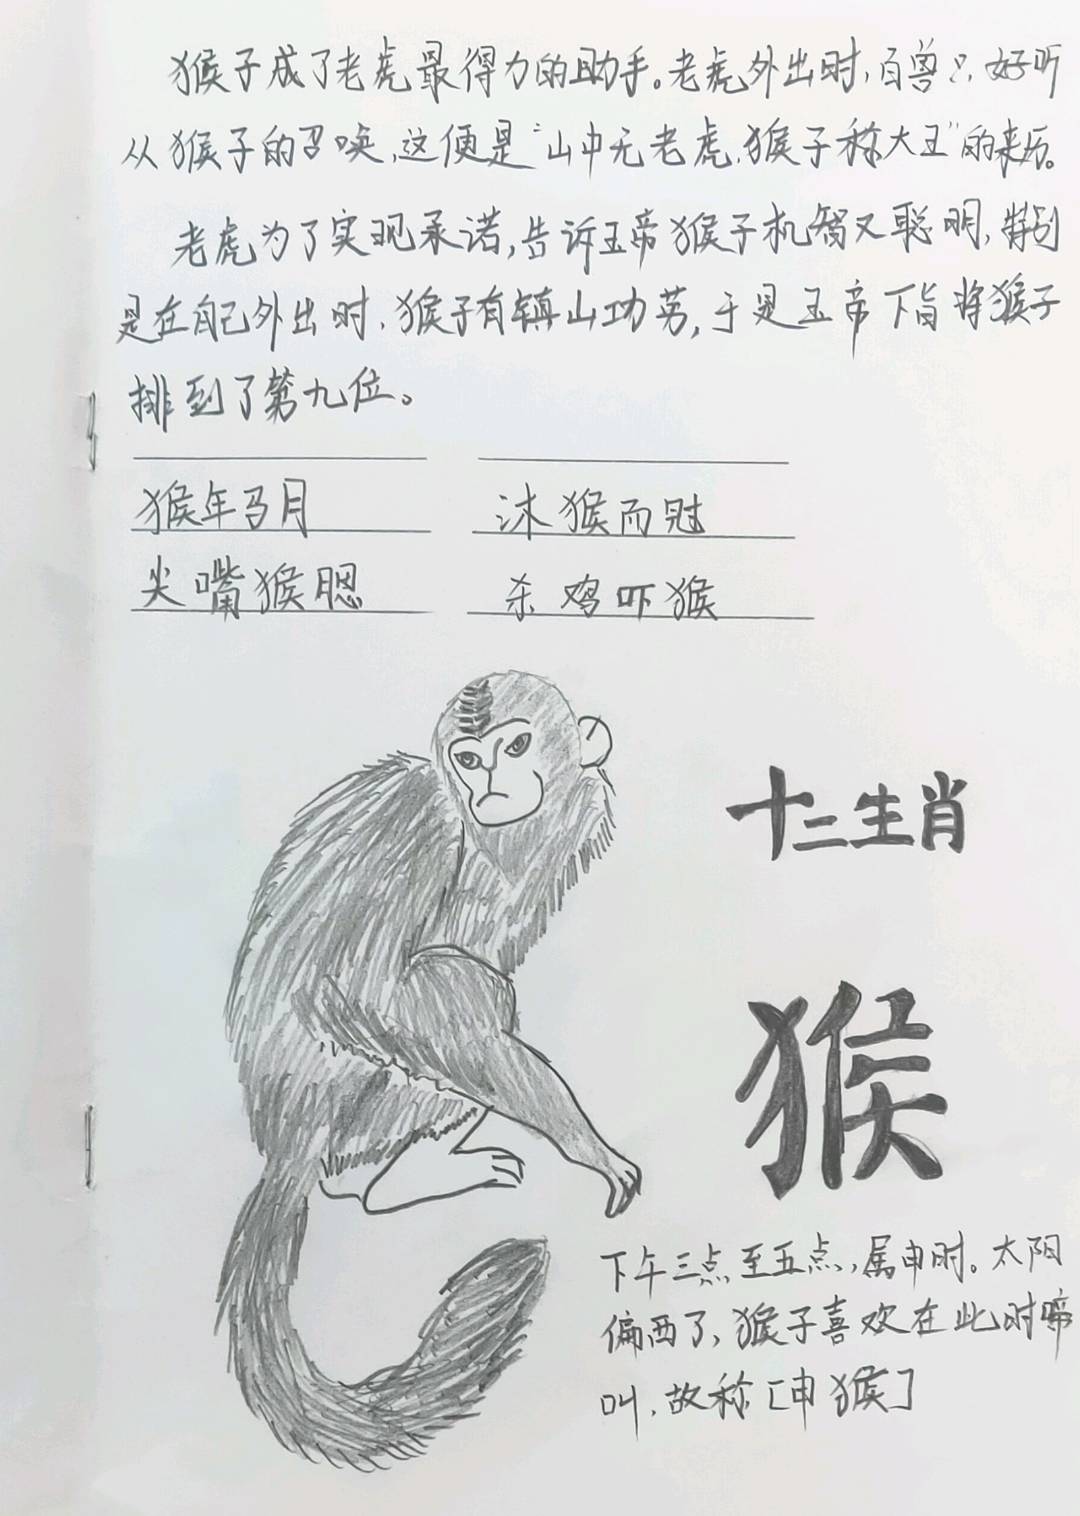 猴子成了老虎最得力的助手。老虎外出时,百兽只好听
从猴子的召唤,这便是“山中无老虎,猴子称大王”的来历。
老虎为了实现承诺,告诉玉帝猴子机智又聪明,特别
是在自己外出时,猴子有镇山功劳,于是玉帝下旨将猴子
排到了第九位。
猴年马月 沐猴而冠
尖嘴猴腮 杀鸡吓猴
十二生肖
猴
下午三点至五点,属申时。太阳
偏西了,猴子喜欢在此时啼
叫,故称[申猴]